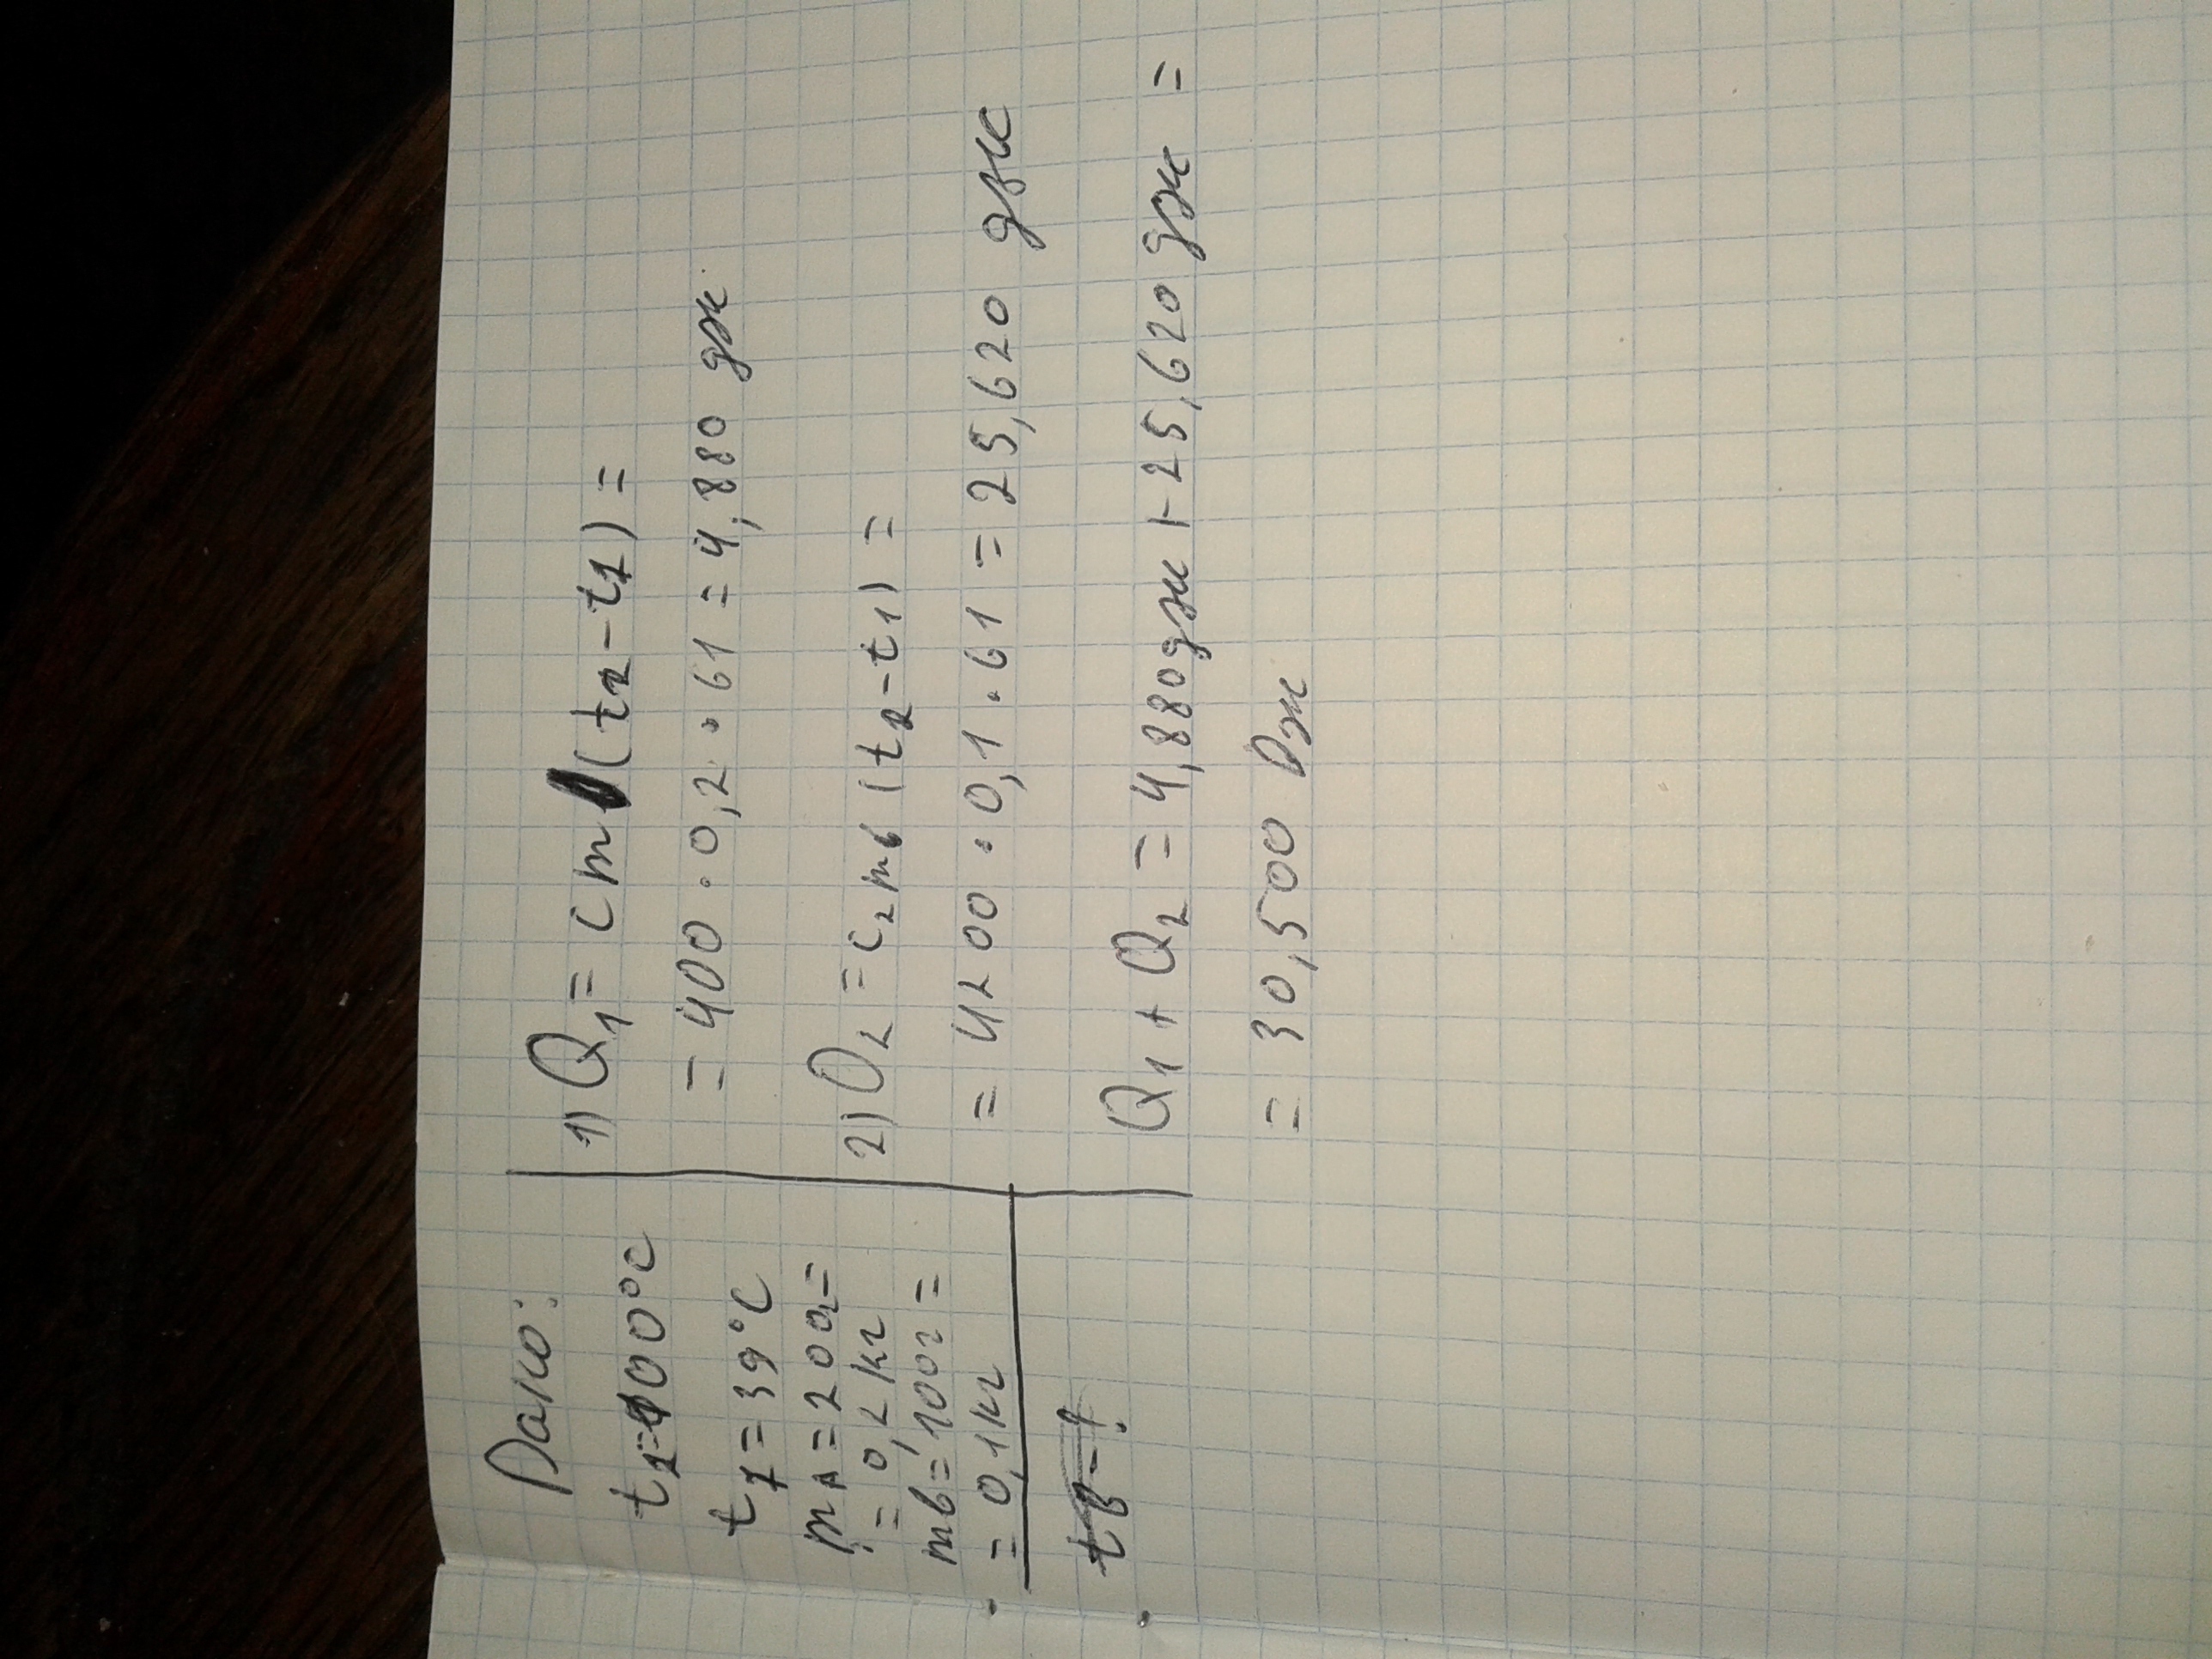 Дано:
t₂=100°C
t₁=39°C
m₁=200г=
=0,2кг
mв=100г=
=0,1кг
1) Q₁=cm(t₂-t₁)=
=400·0,2·61=4,880 дж
2) Q₂=c₂mв(t₂-t₁)=
=4200·0,1·61=25,620 дж
Q₁+Q₂=4,880дж+25,620дж=
=30,500 Дж